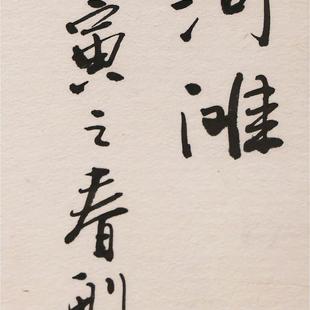 河滩
寅之春